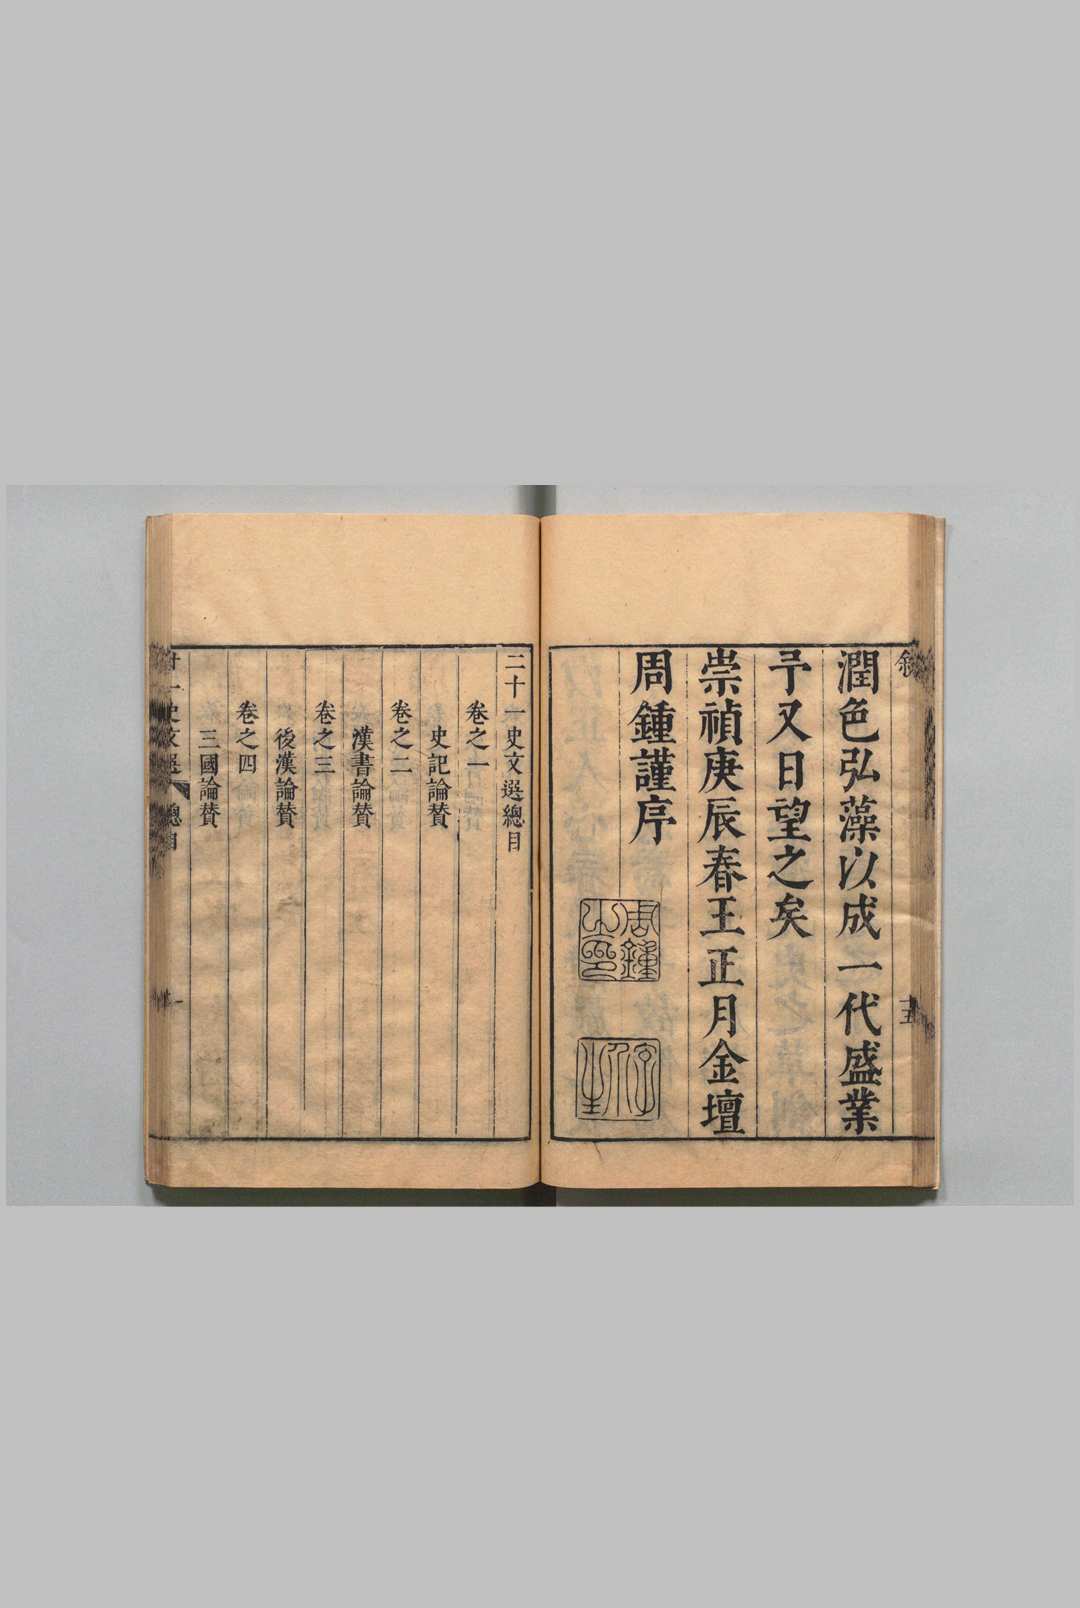 敘
十五
潤色弘藻以成一代盛業
予又日望之矣
崇禎庚辰春王正月金壇
周鍾謹序
周鍾之印
二十一史文選總目
卷之一
史記論贊
卷之二
漢書論贊
卷之三
後漢論贊
卷之四
三國論贊
廿一史文選 總目 一